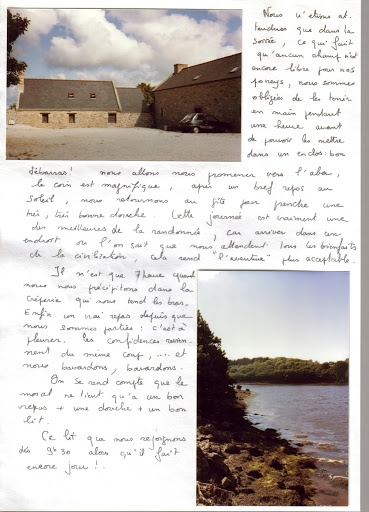 Nous n'étions at-
tendues que dans la
soirée, ce qui fait
qu'aucun champ n'est
encore libre pour nos
poneys, nous sommes
obligées de les tenir
en main pendant
une heure avant
de pouvoir les mettre
dans un enclos: bon
débarras! nous allons nous promener vers l'aber,
le coin est magnifique, après un bref repos au
soleil, nous retournons au gîte par prendre une
très, très bonne douche. Cette journée est vraiment une
des meilleures de la randonnée, car arriver dans un
endroit où l'on sait que nous attendent tous les bienfaits
de la civilisation, cela rend "l'aventure" plus acceptable.
Il n'est que 7 heure quand
nous nous précipitons dans la
crêperie qui nous tend les bras.
Enfin un vrai repas depuis que
nous sommes parties: c'est à
pleurer. les confidences revien-
nent du même coup, .... et
nous bavardons, bavardons.
On se rend compte que le
moral ne tient qu'a un bon
repas + une douche + un bon
lit.
Ce lit que nous rejoignons
dès 9h30 alors qu'il fait
encore jour!..